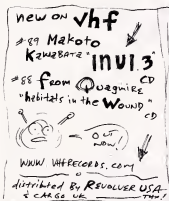 new on vhf
#89 Makoto
Kawabata "INUI 3"
CD
#88 from Quagmire
"habitats in the Wound"
CD
OUT
NOW!
WWW VHFRECORDS.COM
distributed by REVOLVER USA
& CARGO UK